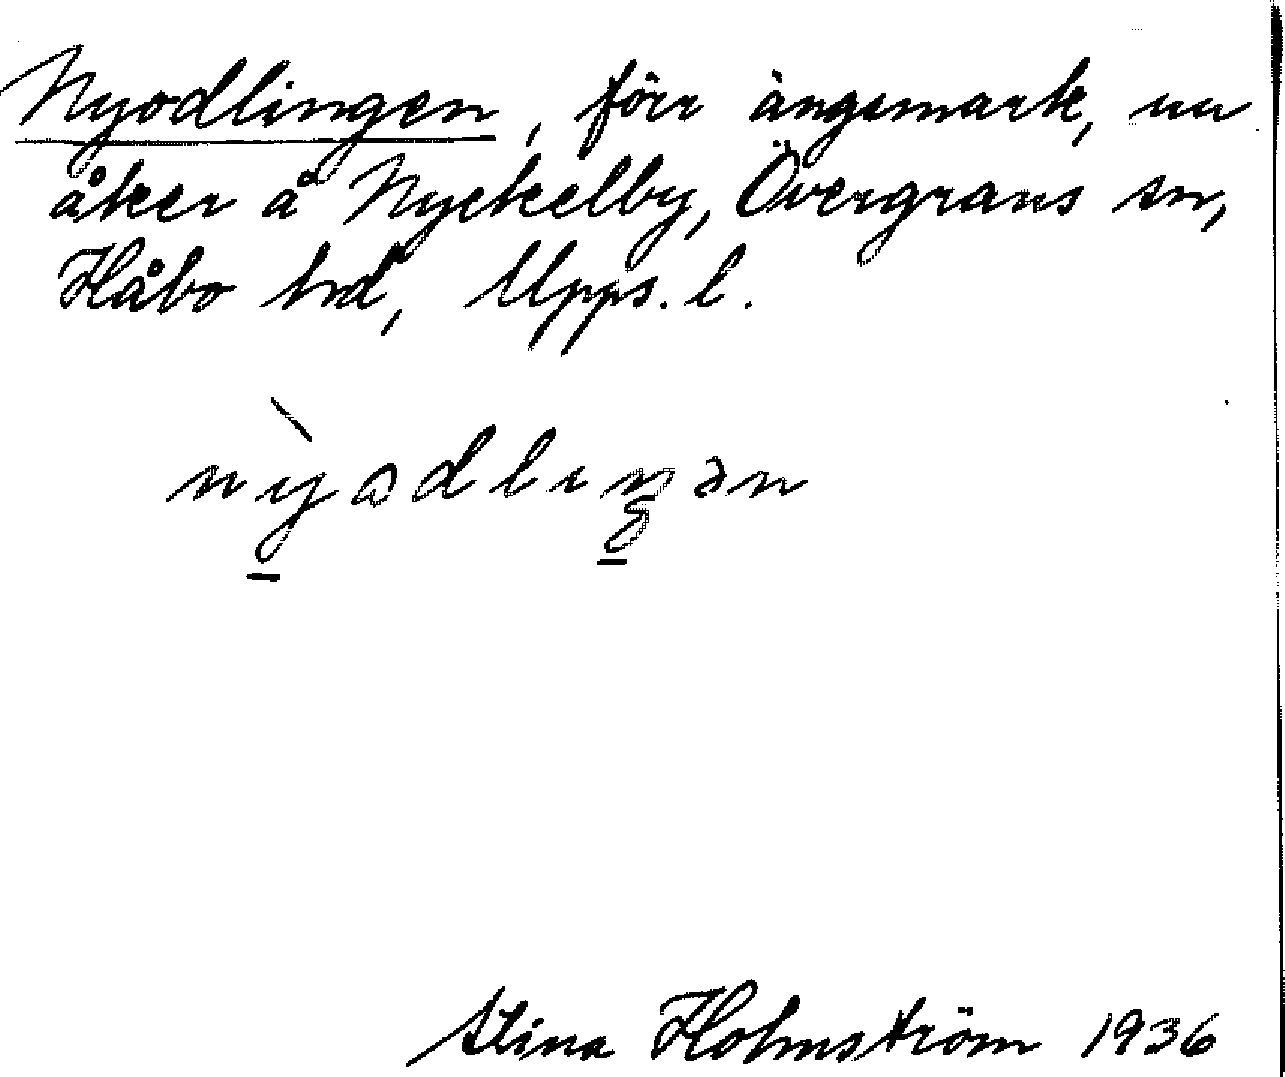 Nyodlingen, förr ängsmark, nu
åker å Nyckelby, Övergrans sn,
Håbo hd, Upps. l.
nỳɑdlıŋən
Stina Holmström 1936